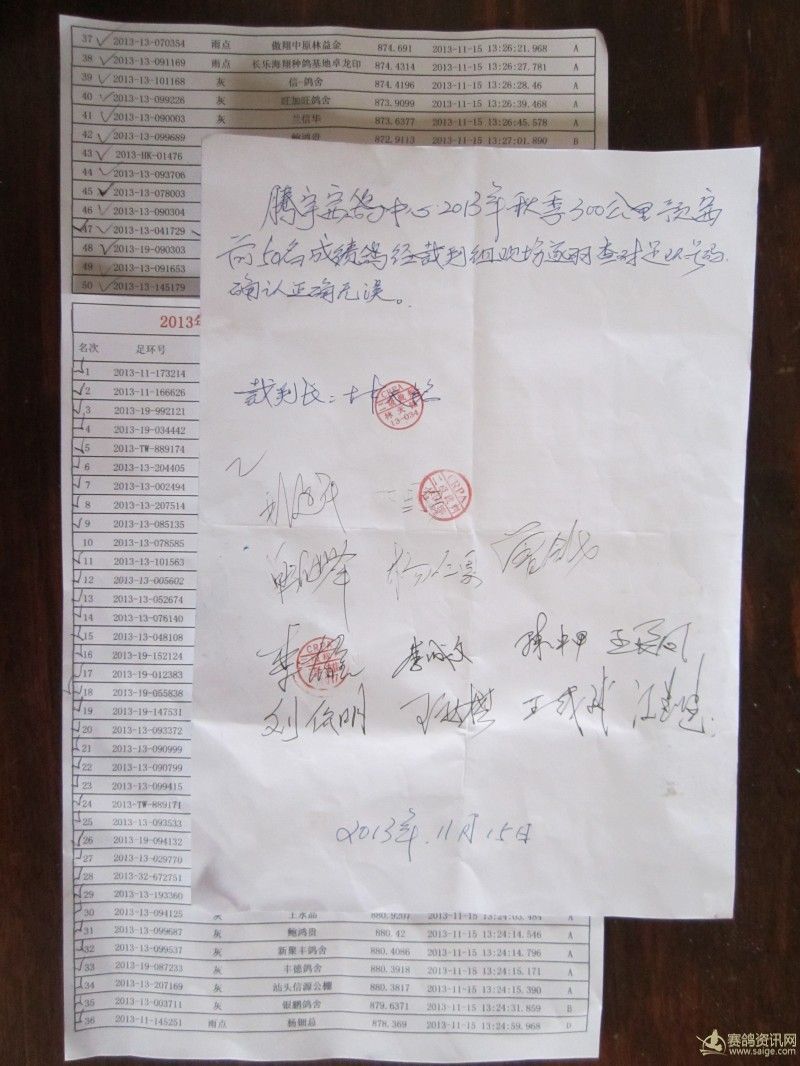 37 2013-13-070354 雨点 傲翔中原林益金 874.691 2013-11-15 13:26:21.968 A
38 2013-13-091169 雨点 长乐海翔种鸽基地卓龙印 874.4314 2013-11-15 13:26:27.781 A
39 2013-13-101168 灰 信-鸽舍 874.4196 2013-11-15 13:26:28.46 A
40 2013-13-099226 灰 旺加旺鸽舍 873.9099 2013-11-15 13:26:39.468 A
41 2013-13-090003 灰 兰信华 873.6377 2013-11-15 13:26:45.578 A
42 2013-13-099689 鲍鸿贵 872.9113 2013-11-15 13:27:01.890 B
43 2013-HK-01476
44 2013-13-093706
45 2013-13-078003
46 2013-13-090304
47 2013-13-041729
48 2013-19-090303
49 2013-13-091653
50 2013-13-145179
2013年
名次 足环号
1 2013-11-173214
2 2013-11-166626
3 2013-19-992121
4 2013-19-034442
5 2013-TW-889174
6 2013-13-204405
7 2013-13-002494
8 2013-13-207514
9 2013-13-085135
10 2013-13-078585
11 2013-13-101563
12 2013-13-005602
13 2013-13-052674
14 2013-13-076140
15 2013-13-048108
16 2013-19-152124
17 2013-19-012383
18 2013-19-055838
19 2013-19-147531
20 2013-13-093372
21 2013-13-090999
22 2013-13-090799
23 2013-13-099415
24 2013-TW-889171
25 2013-13-093533
26 2013-19-094132
27 2013-13-029770
28 2013-32-672751
29 2013-13-193360
30 2013-13-094125 灰 王水品 880.9207 2013-11-15 13:24:03.484 A
31 2013-13-099687 灰 鲍鸿贵 880.42 2013-11-15 13:24:14.546 A
32 2013-13-099537 灰 新聚丰鸽舍 880.4086 2013-11-15 13:24:14.796 A
33 2013-19-087233 灰 丰德鸽舍 880.3918 2013-11-15 13:24:15.171 A
34 2013-13-207169 灰 汕头信源公棚 880.3817 2013-11-15 13:24:15.390 A
35 2013-13-003711 灰 银鹏鸽舍 879.6371 2013-11-15 13:24:31.859 B
36 2013-11-145251 雨点 杨钿总 878.369 2013-11-15 13:24:59.968 D
腾宇赛鸽中心2013年秋季300公里预赛
前50名成绩鸽经裁判组现场逐羽查对足环号码
确认正确无误。
裁判长：林
CRPA
13-034
CRPA
CRPA
李
刘伝明
2013年.11月15日
赛鸽资讯网
www.saige.com